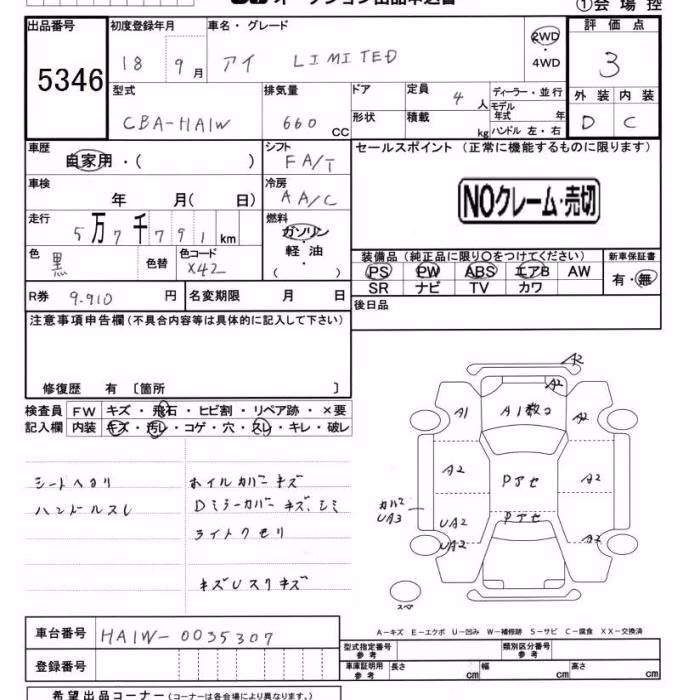 オークション出品申込書
①会場控
出品番号 初度登録年月 車名・グレード 評価点
5346 18 9月 アイ LIMITED 2WD・4WD 3
型式 排気量 ドア 定員 4人 ディーラー・並行 外装 内装
CBA-HA1W 660 CC 形状 積載 kg モデル年式 年 ハンドル 左・右 D C
車歴 自家用・( ) シフト FA/T セールスポイント (正常に機能するものに限ります)
車検 年 月( 日) 冷房 AA/C
NOクレーム・売切
走行 5万7千791km 燃料 ガソリン・軽油・( )
色 黒 色替 色コード X42
装備品 (純正品に限り○をつけてください) 新車保証書
PS PW ABS エアB AW 有・無
SR ナビ TV カワ
R券 9.910円 名変期限 月 日 後日品
注意事項申告欄 (不具合内容等は具体的に記入して下さい)
修復歴 有 〔箇所 〕
検査員 FW キズ・飛石・ヒビ割・リペア跡・×要
記入欄 内装 キズ・汚レ・コゲ・穴・スレ・キレ・破レ
シートヘタリ ホイルカバーキズ
ハンドルスレ Dミラーカバーキズ、シミ
ライトクモリ
キズUスリキズ
A2
A2
A1 A1数コ A2
A2 Pアセ A2
カバー UA3 UA2 Pアセ
UA2 A2
スペア
A-キズ E-エクボ U-凹み W-補修跡 S-サビ C-腐食 XX-交換済
車台番号 HA1W-0035307
型式指定番号 参考 類別区分番号 参考
登録番号 車庫証明用 参考 長さ cm 幅 cm 高さ cm
希望出品コーナー (コーナーは各会場により異なります。)